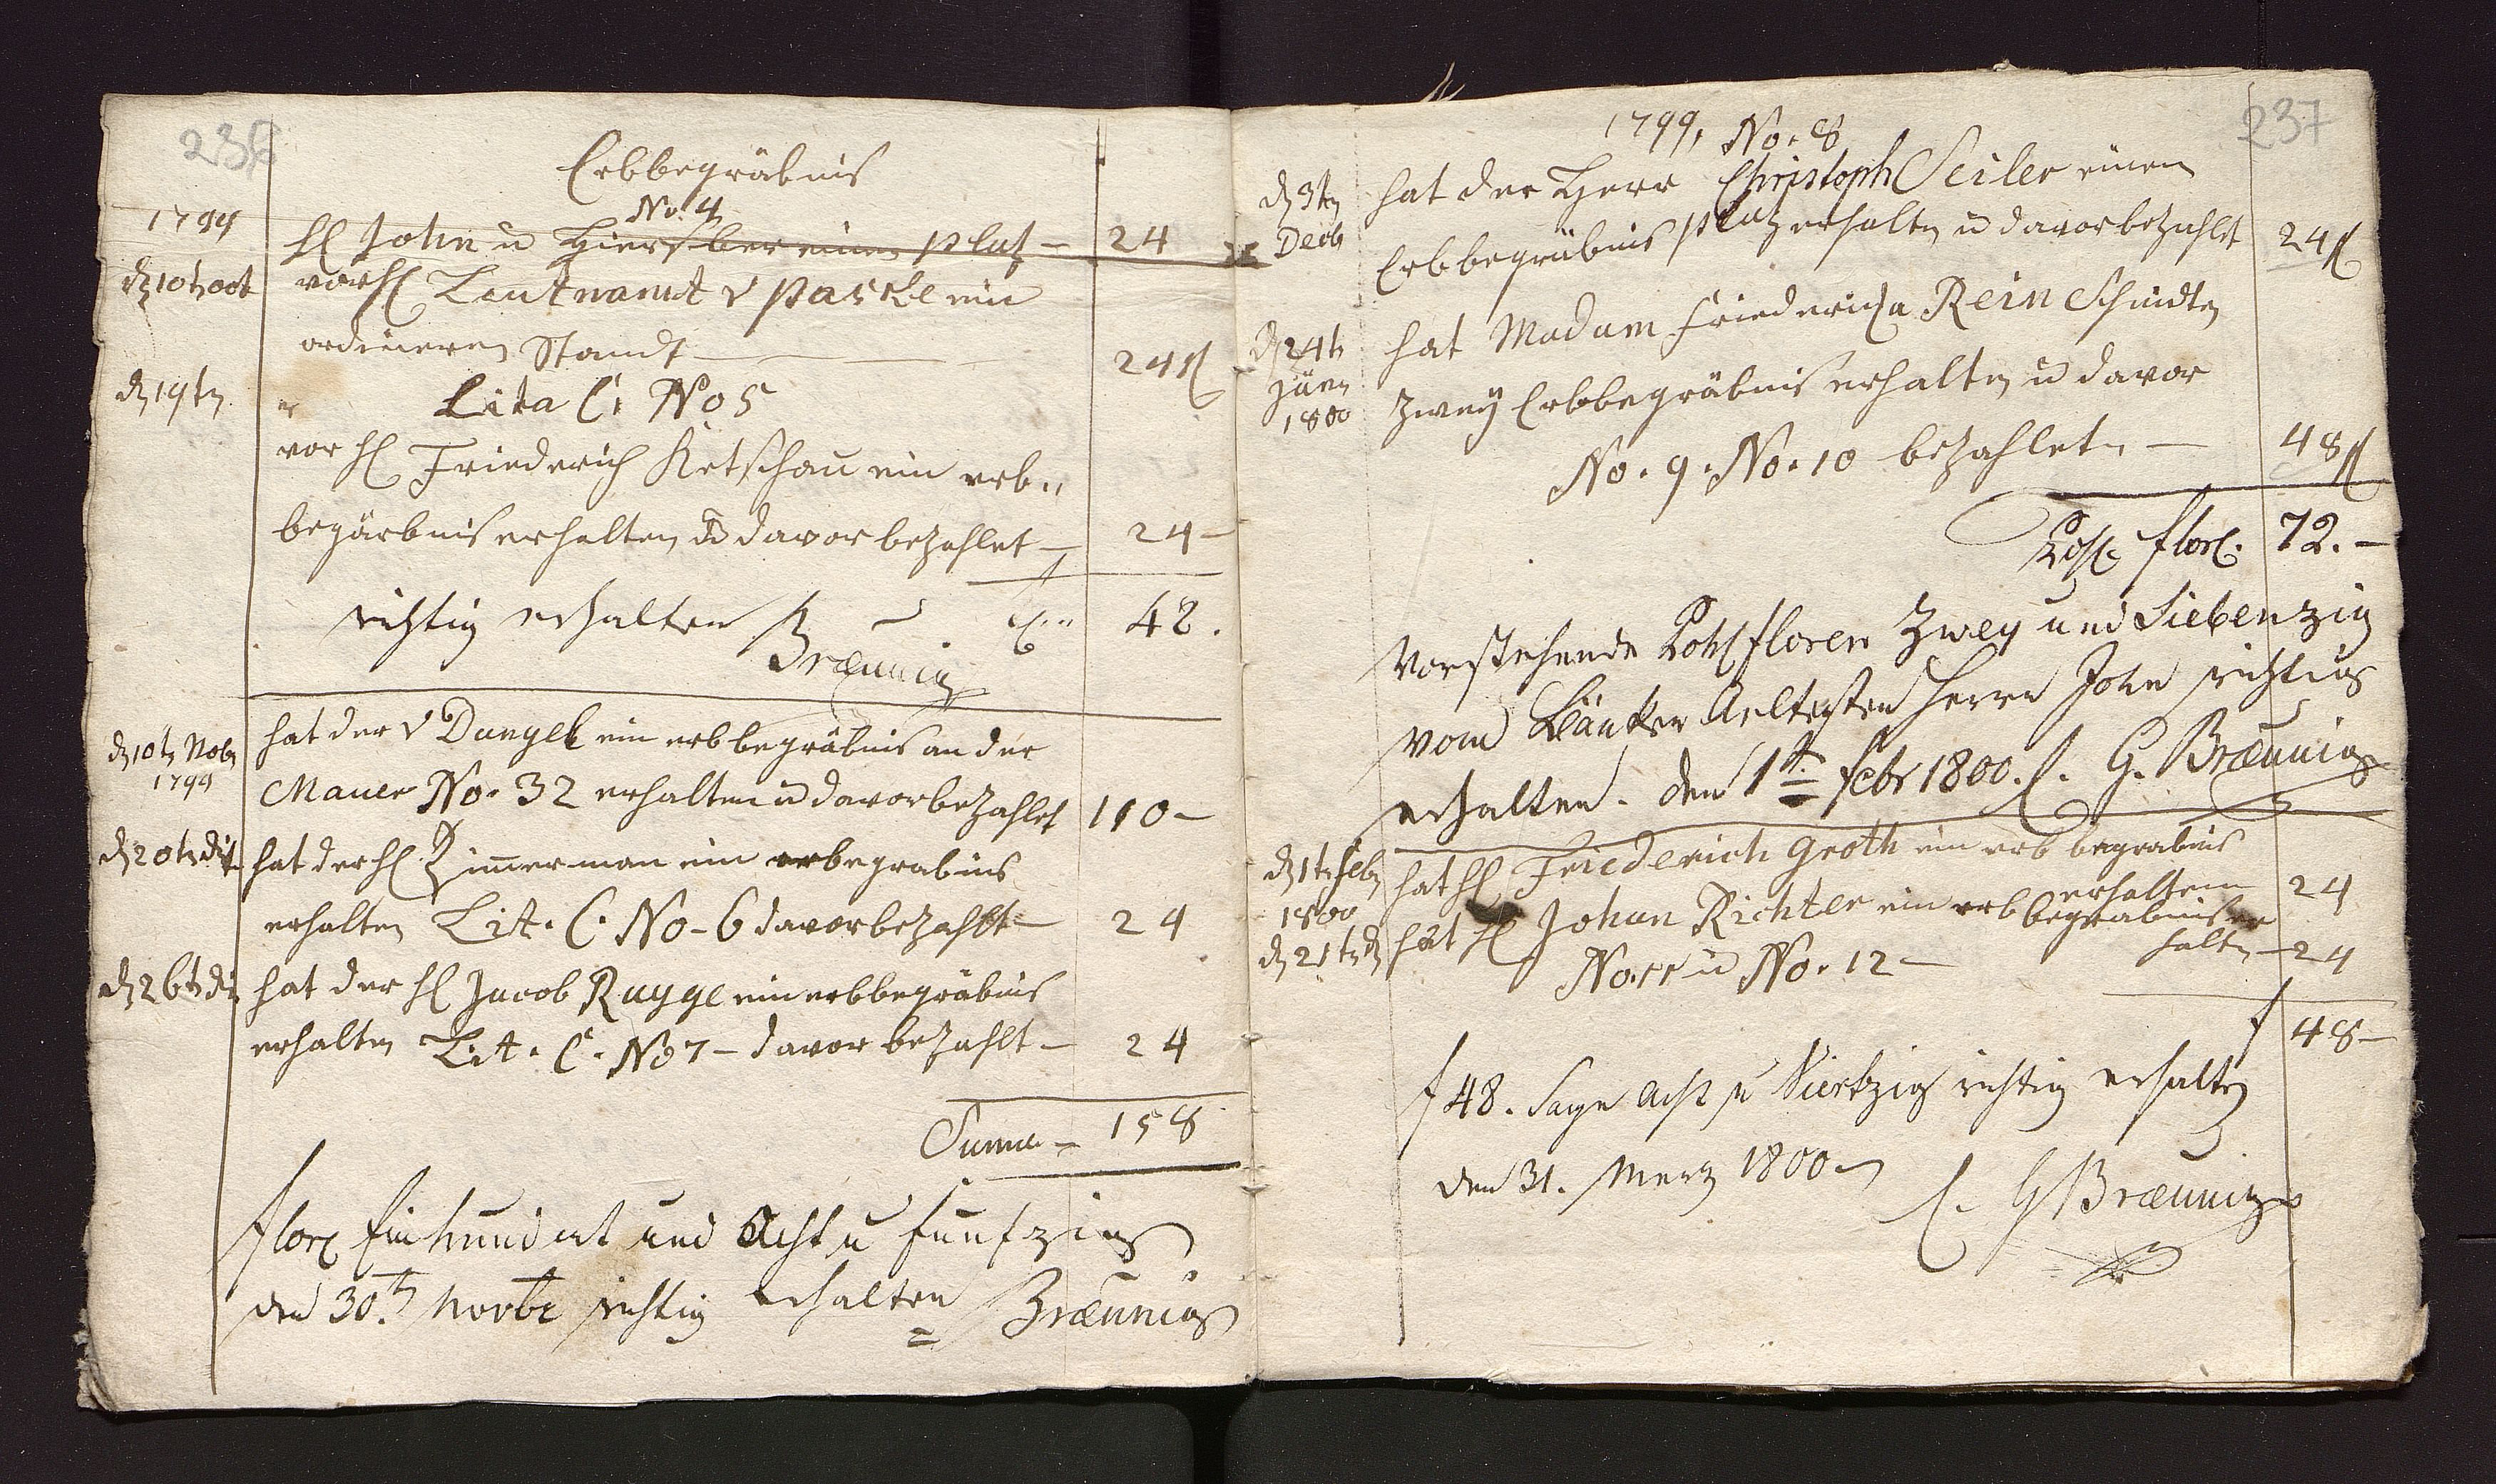 236
Erbbegräbnis
No. 4
1799
H John u Hiersber einen platz – 24
d 10t oct vor H Leutnamt v paschke ein
ordineren Standt — 24 f
d 19tn Lita C. No 5
vor H Friederich Ketschau ein erb„
begärbnis erhalten u davor bezahlet – 24 –
richtig erhalten 48.
Brænnig
d 10t Nob 1799 hat der v Dangel ein erbbegräbnis an der
Mauer No. 32 erhalten u davor bezahlet 110 –
d 20t dit hat der H Zimerman ein erbegrabnis
erhalten Lit. C. No – 6 davor bezahlt – 24
d 26t di hat der H Jacob Rugge ein erbbegräbnis
erhalten Lit. C. No 7 – davor bezahlt – 24
Suma – 158
flor Ein hundert und Acht u funfzig
den 30t. Novbr richtig erhalten Brænnig
237
1799. No. 8
d 3tn Decb hat der Herr Christoph Seiler einen
Erbbegräbnis platz erhalten u davor bezahlt 24 f
d 24t Jäner 1800 hat Madam Friedericha Rein Schmidten
zwey Erbbegräbnis erhalten u davor
No. 9. No. 10 bezahleten – 48 f
flor. 72. –
Vorstehende Pohl floren Zwey und Siebenzig
vom Bänken Aeltesten Herrn John richtig
erhalten. den 1t febr 1800. C. G. Brænnig
d 1t feb 1800 hat H Friederich Groth ein erb begrabnis
erhaltenn 24
d 21t d hat H Johan Richter ein erbbegrabnis er
halten – 24
No. 11 u No. 12 –
f 48 –
f 48. Sage Acht u Viertzig richtig erhalten
den 31. Mertz 1800
C. G Brænnig